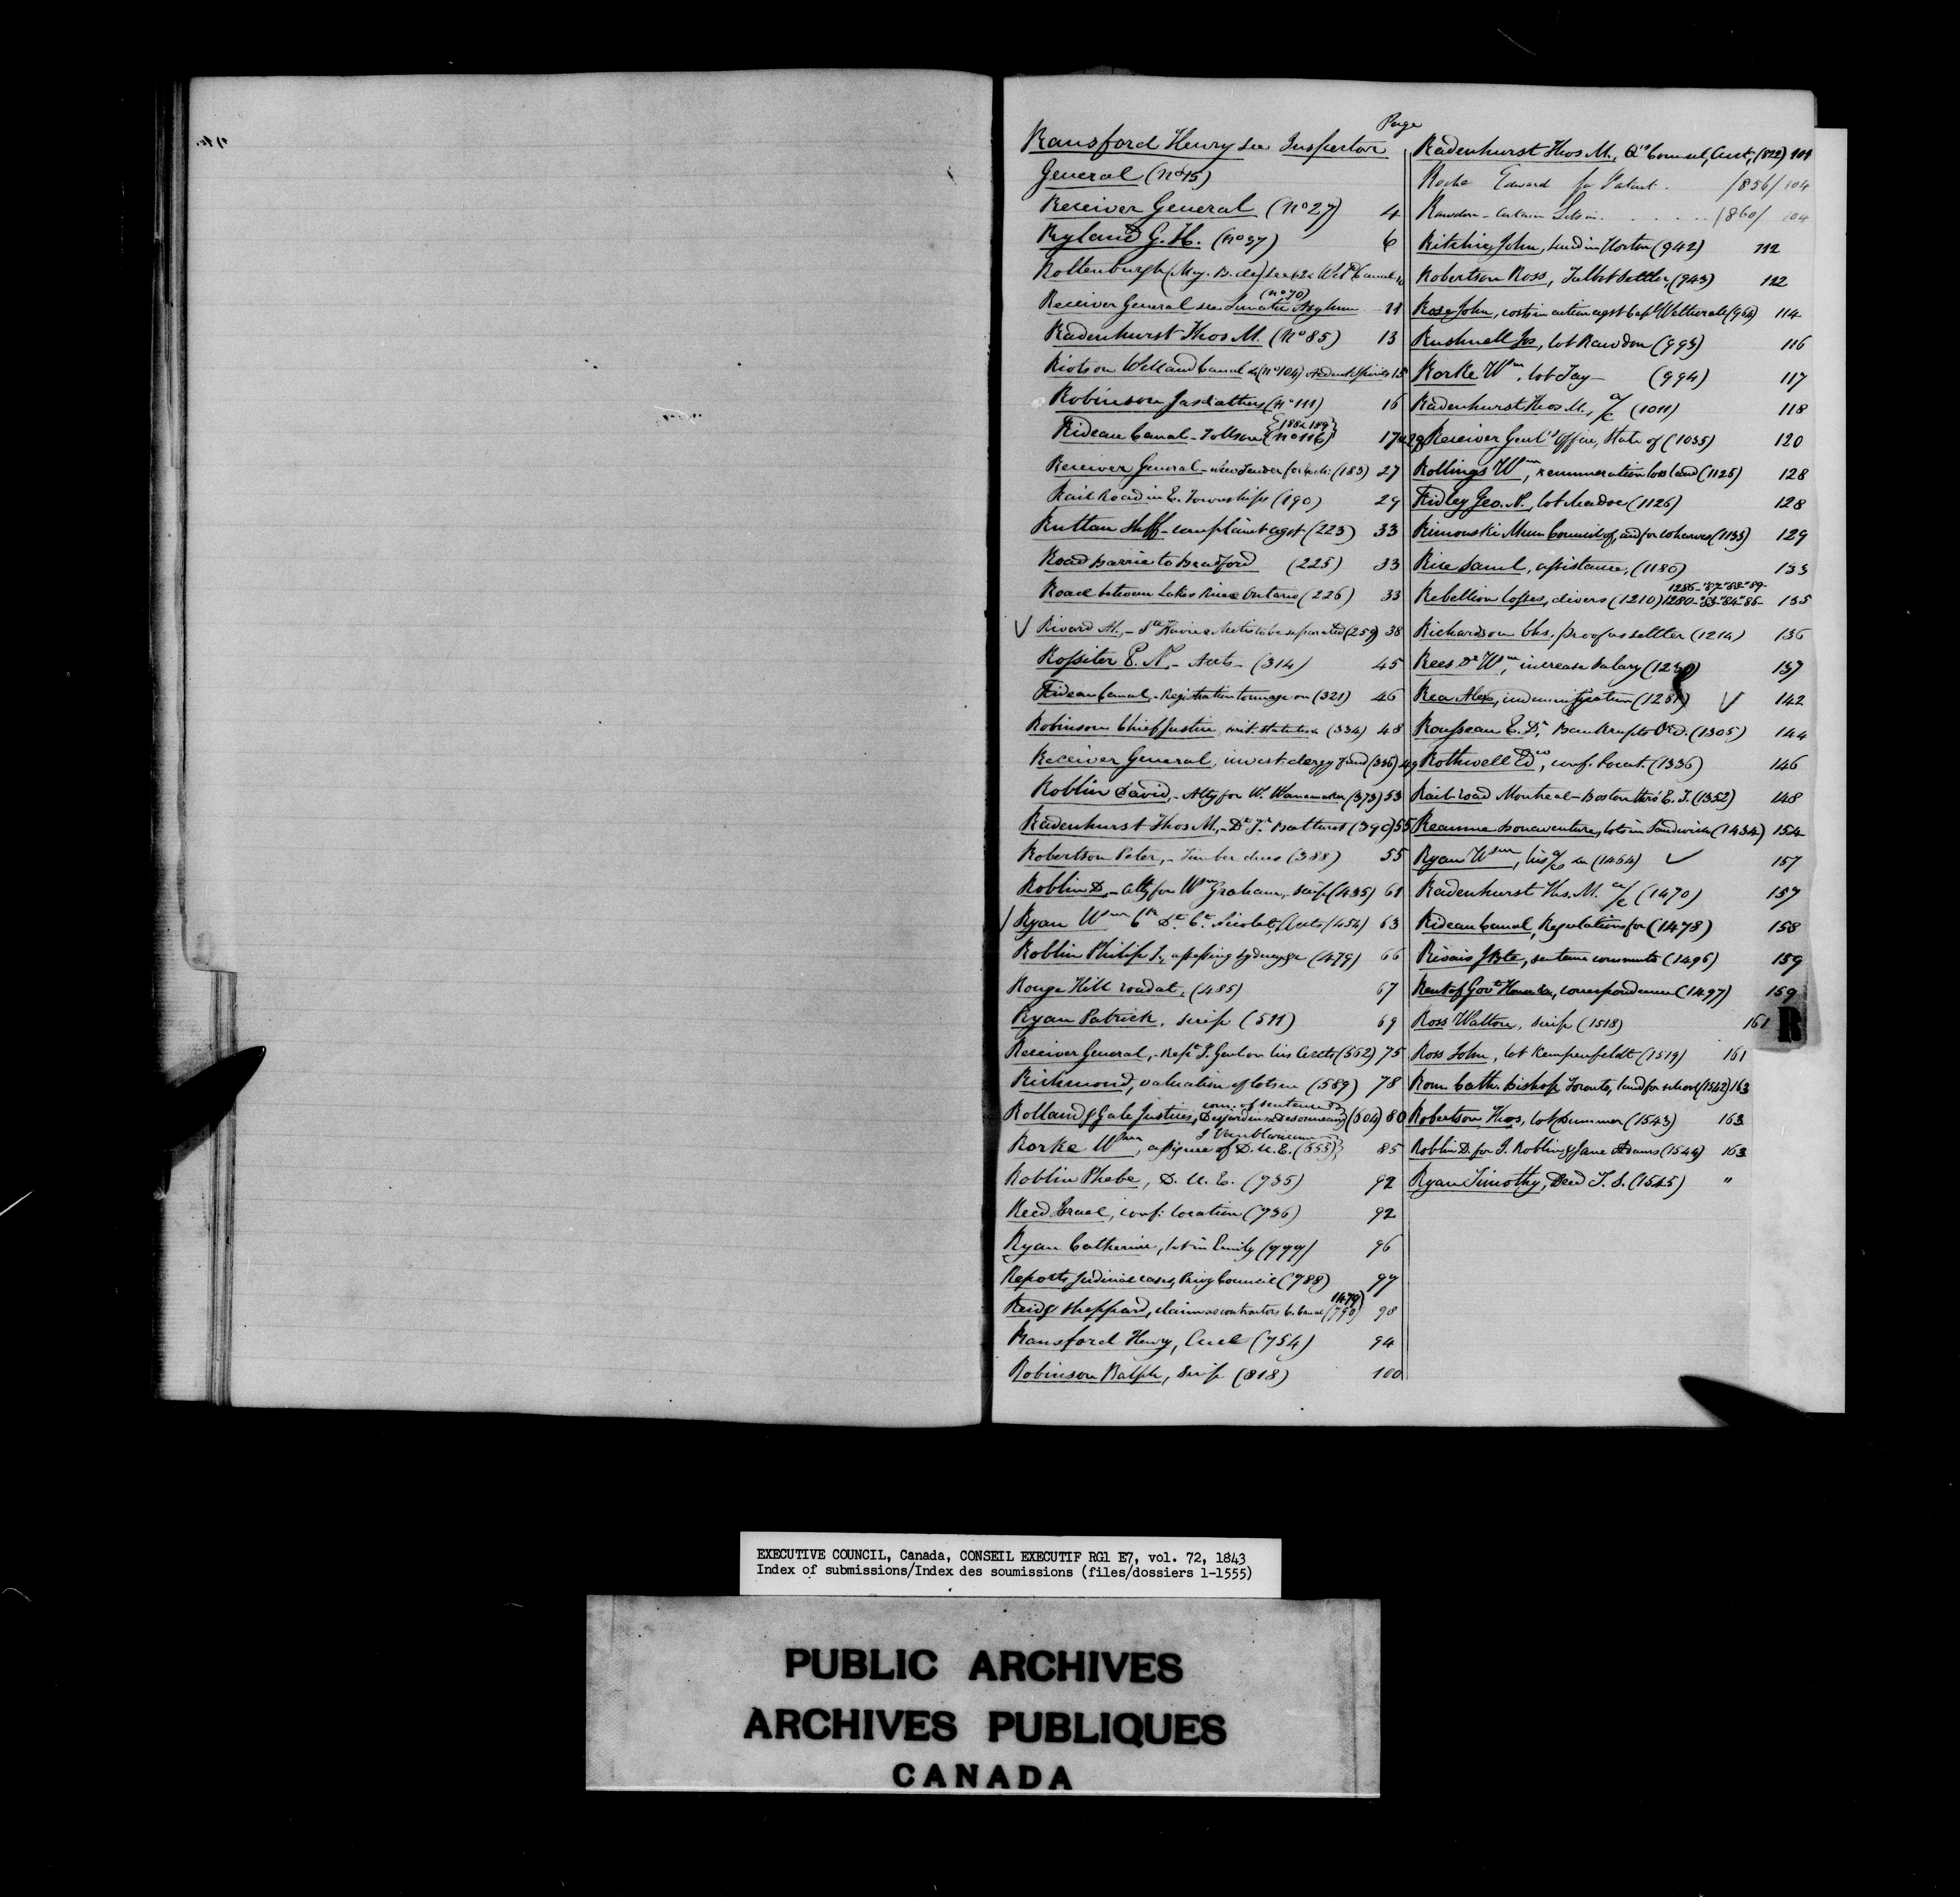 Page
Ransford Henry see Inspector
General (No 15)
Receiver General (No 27) 4
Ryland G. H. (No 37) 6
Rottenburg (Maj. B. de) see Welld Canal
Receiver General see Lunatic Asylum (No 70) 11
Radenhurst Thos M. (No 85) 13
Riots on Welland Canal &c (No 104) Ardent Spirits 15
Robinson Jas & others (No 111) 16
Rideau Canal - Tolls on (No 116) (188 & 189) 17 & 29
Receiver General - (183) 27
Rail Road in E. Townships (190) 29
Ruttan Shff - complaint agst (223) 33
Road Barrie to Bradford (225) 33
Road between Lakes Rice & Ontario (226) 33
Rivard A., - & Metis to be separated (259) 38
Rossiter E. N. - Accts - (314) 45
Rideau Canal - Registration tonnage on (321) 46
Robinson Chief Justice, Statutes (334) 48
Receiver General, invest. clergy fund (336) 49
Roblin David, - Atty for W. Wanamaker (373) 53
Radenhurst Thos M., - Dt Je Bathurst (390) 55
Robertson Peter, - Timber dues (388) 55
Roblin D. - Atty for Wm Graham, Scrip (435) 61
Ryan Wm Ck Dt Ct Nicolet, Accts (454) 63
Roblin Philip J., assessing Sydney &c (479) 66
Rouge Hill road at, (485) 67
Ryan Patrick, Scrip (511) 69
Receiver General, - Rept I. Genl on his Accts (552) 75
Richmond, valuation of lots in (589) 78
Rolland & Gale Justices, com. of sentence Desjardins & Desomeau (604) 80
Rorke Wm, assignee of J Vanblaricum D. U. E. (655) 85
Roblin Phebe, D. U. E. (735) 92
Reed Israel, conf: location (736) 92
Ryan Catherine, lot in Emily (777) 96
Reports, Judicial cases, Privy Council (788) 97
Reid & Sheppard, claim as contractors C. Canal (790) (1479) 98
Ransford Henry, Acct (754) 94
Robinson Ralph, Scrip (818) 100
Radenhurst Thos M., Q's Counsel, Acct, (822) 101
Roche Edward for Patent. /856/ 104
Rawdon - certain Lots in . . . . . /860/ 104
Ritchie John, land in Horton (942) 112
Robertson Ross, Talbot Settler, (943) 112
Rose John, costs in action agst Capt Wetherall (964) 114
Rushnell Jos, lot Rawdon (993) 116
Rorke Wm, lot Tay - (994) 117
Radenhurst Thos M., a/c (1011) 118
Receiver Genl's Office, State of (1035) 120
Rollings Wm, remuneration loss land (1125) 128
Ridley Geo. N., lot Madoc (1126) 128
Rimouski Mun Council of, aid for wharves (1133) 129
Rice Saml, assistance, (1180) 133
Rebellion losses, divers (1210) 1280-'83-'84-'85- 1286-'87-'88-'89- 135
Richardson Chs. proof as settler (1214) 136
Rees Dr Wm, increase Salary (1230) 137
Rea Alex, indemnification (1281) 142
Rousseau E. D., Bankrupts Ord. (1305) 144
Rothwell Edwd, conf. locat. (1336) 146
Railroad Montreal - Boston thro' E. T. (1352) 148
Reaume Bonaventure, lots in Sandwich (1434) 154
Ryan Wm, his a/c &c (1464) 157
Radenhurst Ths. M. a/c (1470) 157
Rideau Canal, Regulations for (1478) 158
Risais JBte, sentence commuted (1496) 159
Rent of Govt House &c, correspondence (1497) 159
Ross Walton, Scrip (1518) 161
Ross John, lot Kempenfeldt (1519) 161
Rom. Cath. Bishop Toronto, land for school (1542) 163
Robertson Thos, lot Dummer (1543) 163
Roblin D. for J. Roblin & Jane Adams (1544) 163
Ryan Timothy, Deed T. S. (1545) "
R
EXECUTIVE COUNCIL, Canada, CONSEIL EXECUTIF RG1 E7, vol. 72, 1843
Index of submissions/Index des soumissions (files/dossiers 1-1555)
PUBLIC ARCHIVES
ARCHIVES PUBLIQUES
CANADA